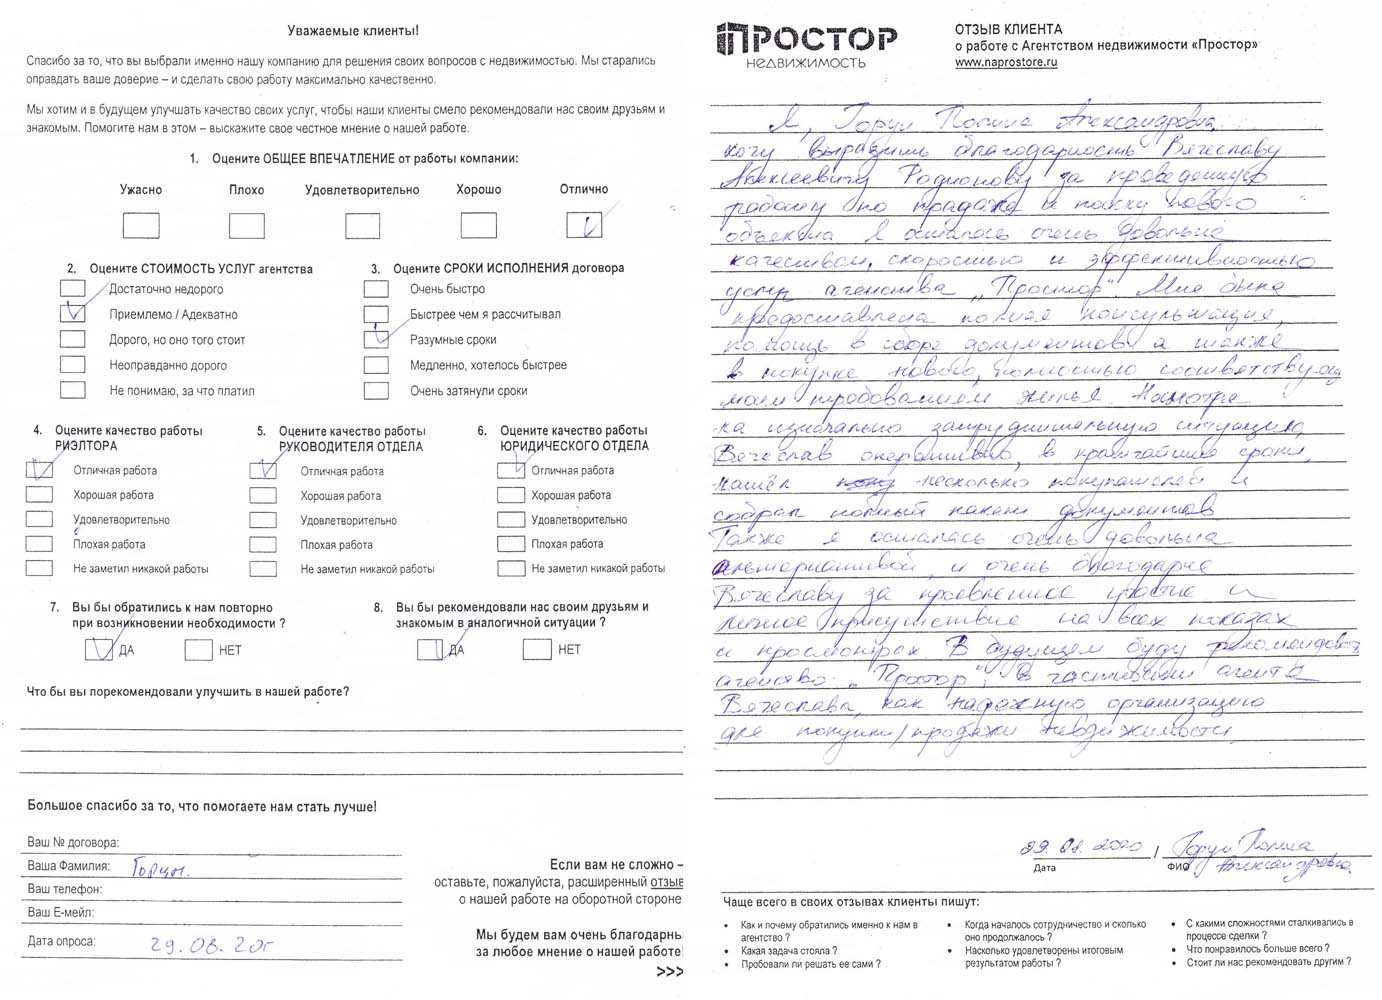 Уважаемые клиенты!
Спасибо за то, что вы выбрали именно нашу компанию для решения своих вопросов с недвижимостью. Мы старались
оправдать ваше доверие – и сделать свою работу максимально качественно.
Мы хотим и в будущем улучшать качество своих услуг, чтобы наши клиенты смело рекомендовали нас своим друзьям и
знакомым. Помогите нам в этом – выскажите свое честное мнение о нашей работе.
1. Оцените ОБЩЕЕ ВПЕЧАТЛЕНИЕ от работы компании:
Ужасно Плохо Удовлетворительно Хорошо Отлично
2. Оцените СТОИМОСТЬ УСЛУГ агентства
Достаточно недорого
Приемлемо / Адекватно
Дорого, но оно того стоит
Неоправданно дорого
Не понимаю, за что платил
3. Оцените СРОКИ ИСПОЛНЕНИЯ договора
Очень быстро
Быстрее чем я рассчитывал
Разумные сроки
Медленно, хотелось быстрее
Очень затянули сроки
4. Оцените качество работы
РИЭЛТОРА
Отличная работа
Хорошая работа
Удовлетворительно
Плохая работа
Не заметил никакой работы
5. Оцените качество работы
РУКОВОДИТЕЛЯ ОТДЕЛА
Отличная работа
Хорошая работа
Удовлетворительно
Плохая работа
Не заметил никакой работы
6. Оцените качество работы
ЮРИДИЧЕСКОГО ОТДЕЛА
Отличная работа
Хорошая работа
Удовлетворительно
Плохая работа
Не заметил никакой работы
7. Вы бы обратились к нам повторно
при возникновении необходимости ?
ДА НЕТ
8. Вы бы рекомендовали нас своим друзьям и
знакомым в аналогичной ситуации ?
ДА НЕТ
Что бы вы порекомендовали улучшить в нашей работе?
Большое спасибо за то, что помогаете нам стать лучше!
Ваш № договора:
Ваша Фамилия:
Ваш телефон:
Ваш Е-мейл:
Дата опроса: 29.08.20г
Если вам не сложно –
оставьте, пожалуйста, расширенный отзыв
о нашей работе на оборотной стороне
Мы будем вам очень благодарны
за любое мнение о нашей работе!
>>>
ПРОСТОР
НЕДВИЖИМОСТЬ
ОТЗЫВ КЛИЕНТА
о работе с Агентством недвижимости «Простор»
www.naprostore.ru
Я, Полина Александровна,
хочу выразить благодарность Вячеславу
Алексеевичу Родионову за проведенную
работу по продаже и поиску нового
объекта. Я осталась очень довольна
качеством, скоростью и эффективностью
услуг агенства "Простор". Мне была
предоставлена полная консультация,
помощь в сборе документов а также
в покупке нового, полностью соответствующ
моим требованиям жилья. Несмотря
на изначально затруднительную ситуацию,
Вячеслав оперативно, в кратчайшие сроки,
нашёл несколько покупателей и
собрал полный пакет документов
Также я осталась очень довольна
альтернативой, и очень благодарна
Вячеславу за проявленное участие и
личное присутствие на всех показах
и просмотрах. В будущем буду рекомендовать
агенство "Простор", в частности агента
Вячеслава, как надежную организацию
для покупки/продажи недвижимости
29.08.2020 / Полина
Александровна
Дата ФИО
Чаще всего в своих отзывах клиенты пишут:
• Как и почему обратились именно к нам в
агентство ?
• Какая задача стояла ?
• Пробовали ли решать ее сами ?
• Когда началось сотрудничество и сколько
оно продолжалось ?
• Насколько удовлетворены итоговым
результатом работы ?
• С какими сложностями сталкивались в
процессе сделки ?
• Что понравилось больше всего ?
• Стоит ли нас рекомендовать другим ?